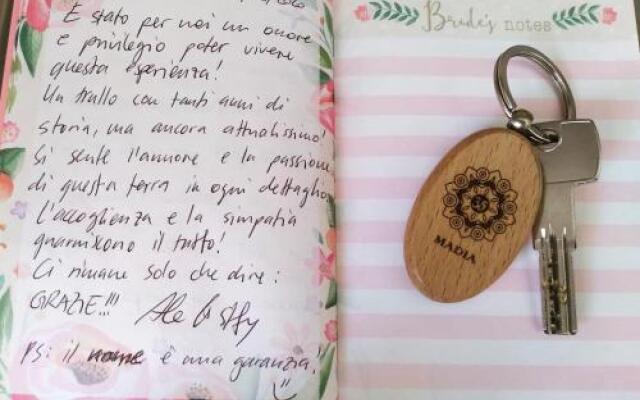 È stato per noi un onore
e privilegio poter vivere
questa esperienza!
Un trullo con tanti anni di
storia, ma ancora attualissimo!
Si sente l'amore e la passione
di questa terra in ogni dettaglio
L'accoglienza e la simpatia
guarniscono il tutto!
Ci rimane solo che dire:
GRAZIE!!!
Ale
PS: il nome è una garanzia!
Bride's notes
MADIA